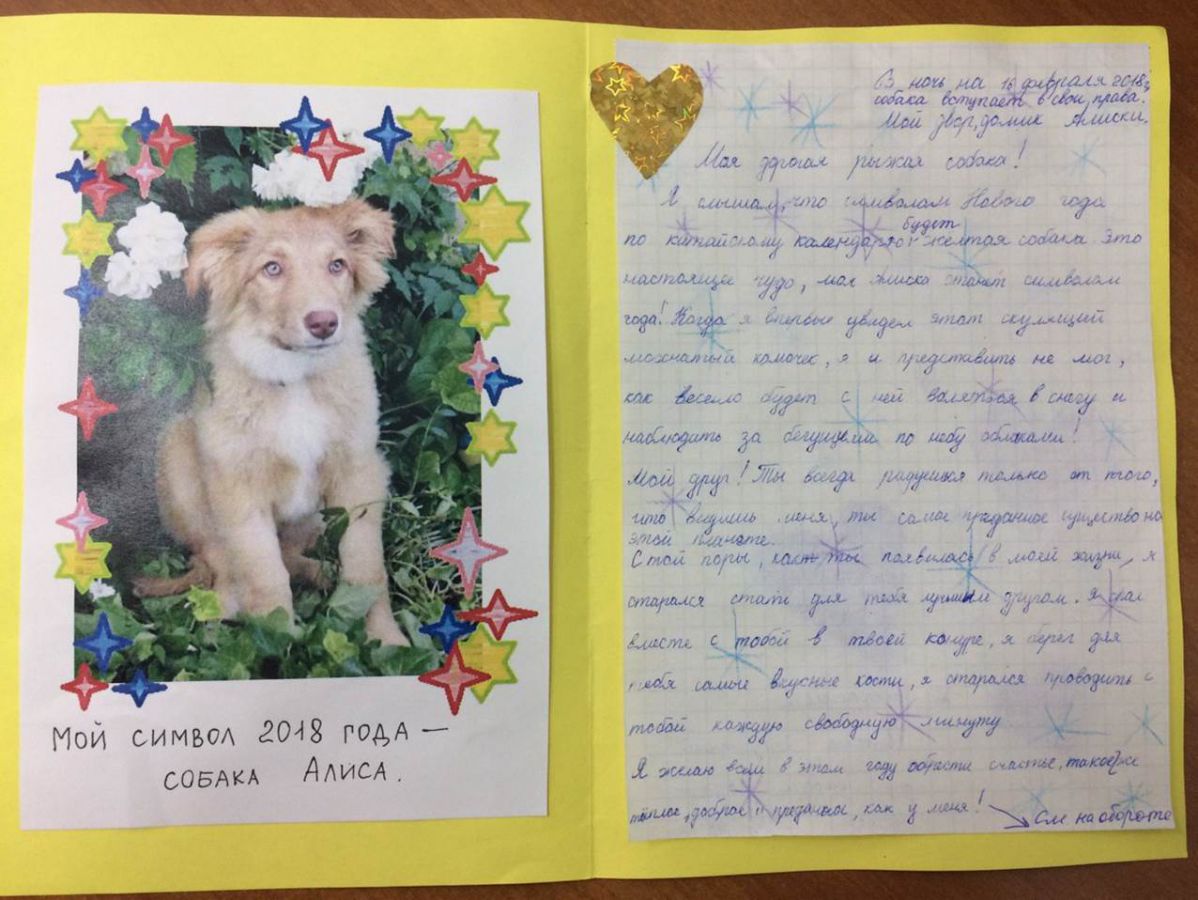 Мой символ 2018 года —
собака Алиса.
В ночь на 16 февраля 2018г.
собака вступает в свои права.
Мой двор, домик Алиски.
Моя дорогая рыжая собака!
Я слышал, что символом Нового года
будет
по китайскому календарю жёлтая собака Это
настоящее чудо, моя Алиска станет символом
года! Когда я впервые увидел этот скулящий
мохнатый комочек, я и представить не мог,
как весело будет с ней валяться в снегу и
наблюдать за бегущими по небу облаками!
Мой друг! Ты всегда радуешься только от того,
что видишь меня, ты самое преданное существо на
этой планете.
С той поры, как ты появилась в моей жизни, я
старался стать для тебя лучшим другом. Я спал
вместе с тобой в твоей конуре, я берег для
тебя самые вкусные кости, я старался проводить с
тобой каждую свободную минуту
Я желаю всем в этом году обрести счастье, такое же
тёплое, доброе и преданное, как у меня!
См на обороте